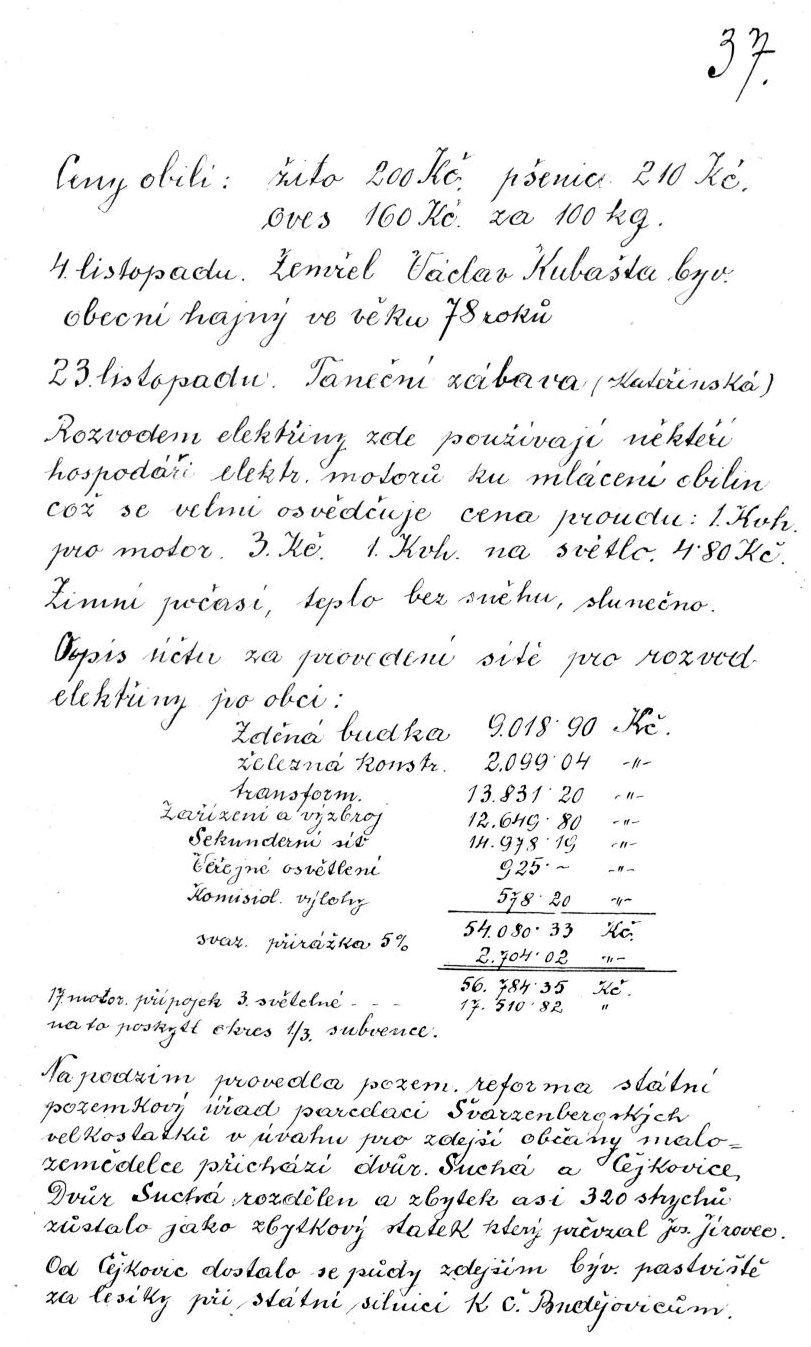 37.
Ceny obilí: žito 200 Kč. pšenice 210 Kč.
oves 160 Kč. za 100 kg.
4. listopadu. Zemřel Václav Kubašta byv.
obecní hajný ve věku 78 roků
23. listopadu. Taneční zábava (Kateřinská)
Rozvodem elektřiny zde používají někteří
hospodáři elektr. motorů ku mlácení obilin
což se velmi osvědčuje cena proudu: 1. Kvh.
pro motor. 3. Kč. 1. Kvh. na světlo. 4·80 Kč.
Zimní počasí, teplo bez sněhu, slunečno.
Opis účtu za provedení sítě pro rozvod
elektřiny po obci:
Zděná budka 9.018·90 Kč.
železná konstr. 2.099·04 -"-
transform. 13.831·20 -"-
Zařízení a výzbroj 12.649·80 -"-
Sekunderní síť 14.978·19 -"-
Veřejné osvětlení 925·- -"-
Komisiol. výlohy 578·20 -"-
54.080·33 Kč.
svaz. přirážka 5% 2.704·02 -"-
56.784·35 Kč.
17 motor. přípojek 3. světelné - - - 17.510·82 "
na to poskytl okres 1/3. subvence.
Na podzim provedla pozem. reforma státní
pozemkový úřad parcelaci Švarzenbergských
velkostatků v úvahu pro zdejší občany malo=
zemědelce přichází dvůr. Suchá a Čejkovice,
Dvůr Suchá rozdělen a zbytek asi 320 strychů
zůstalo jako zbytkový statek který převzal Jos. Jírovec.
Od Čejkovic dostalo se půdy zdejším býv. pastviště
za lesíky při státní silnici k Č. Budějovicům.